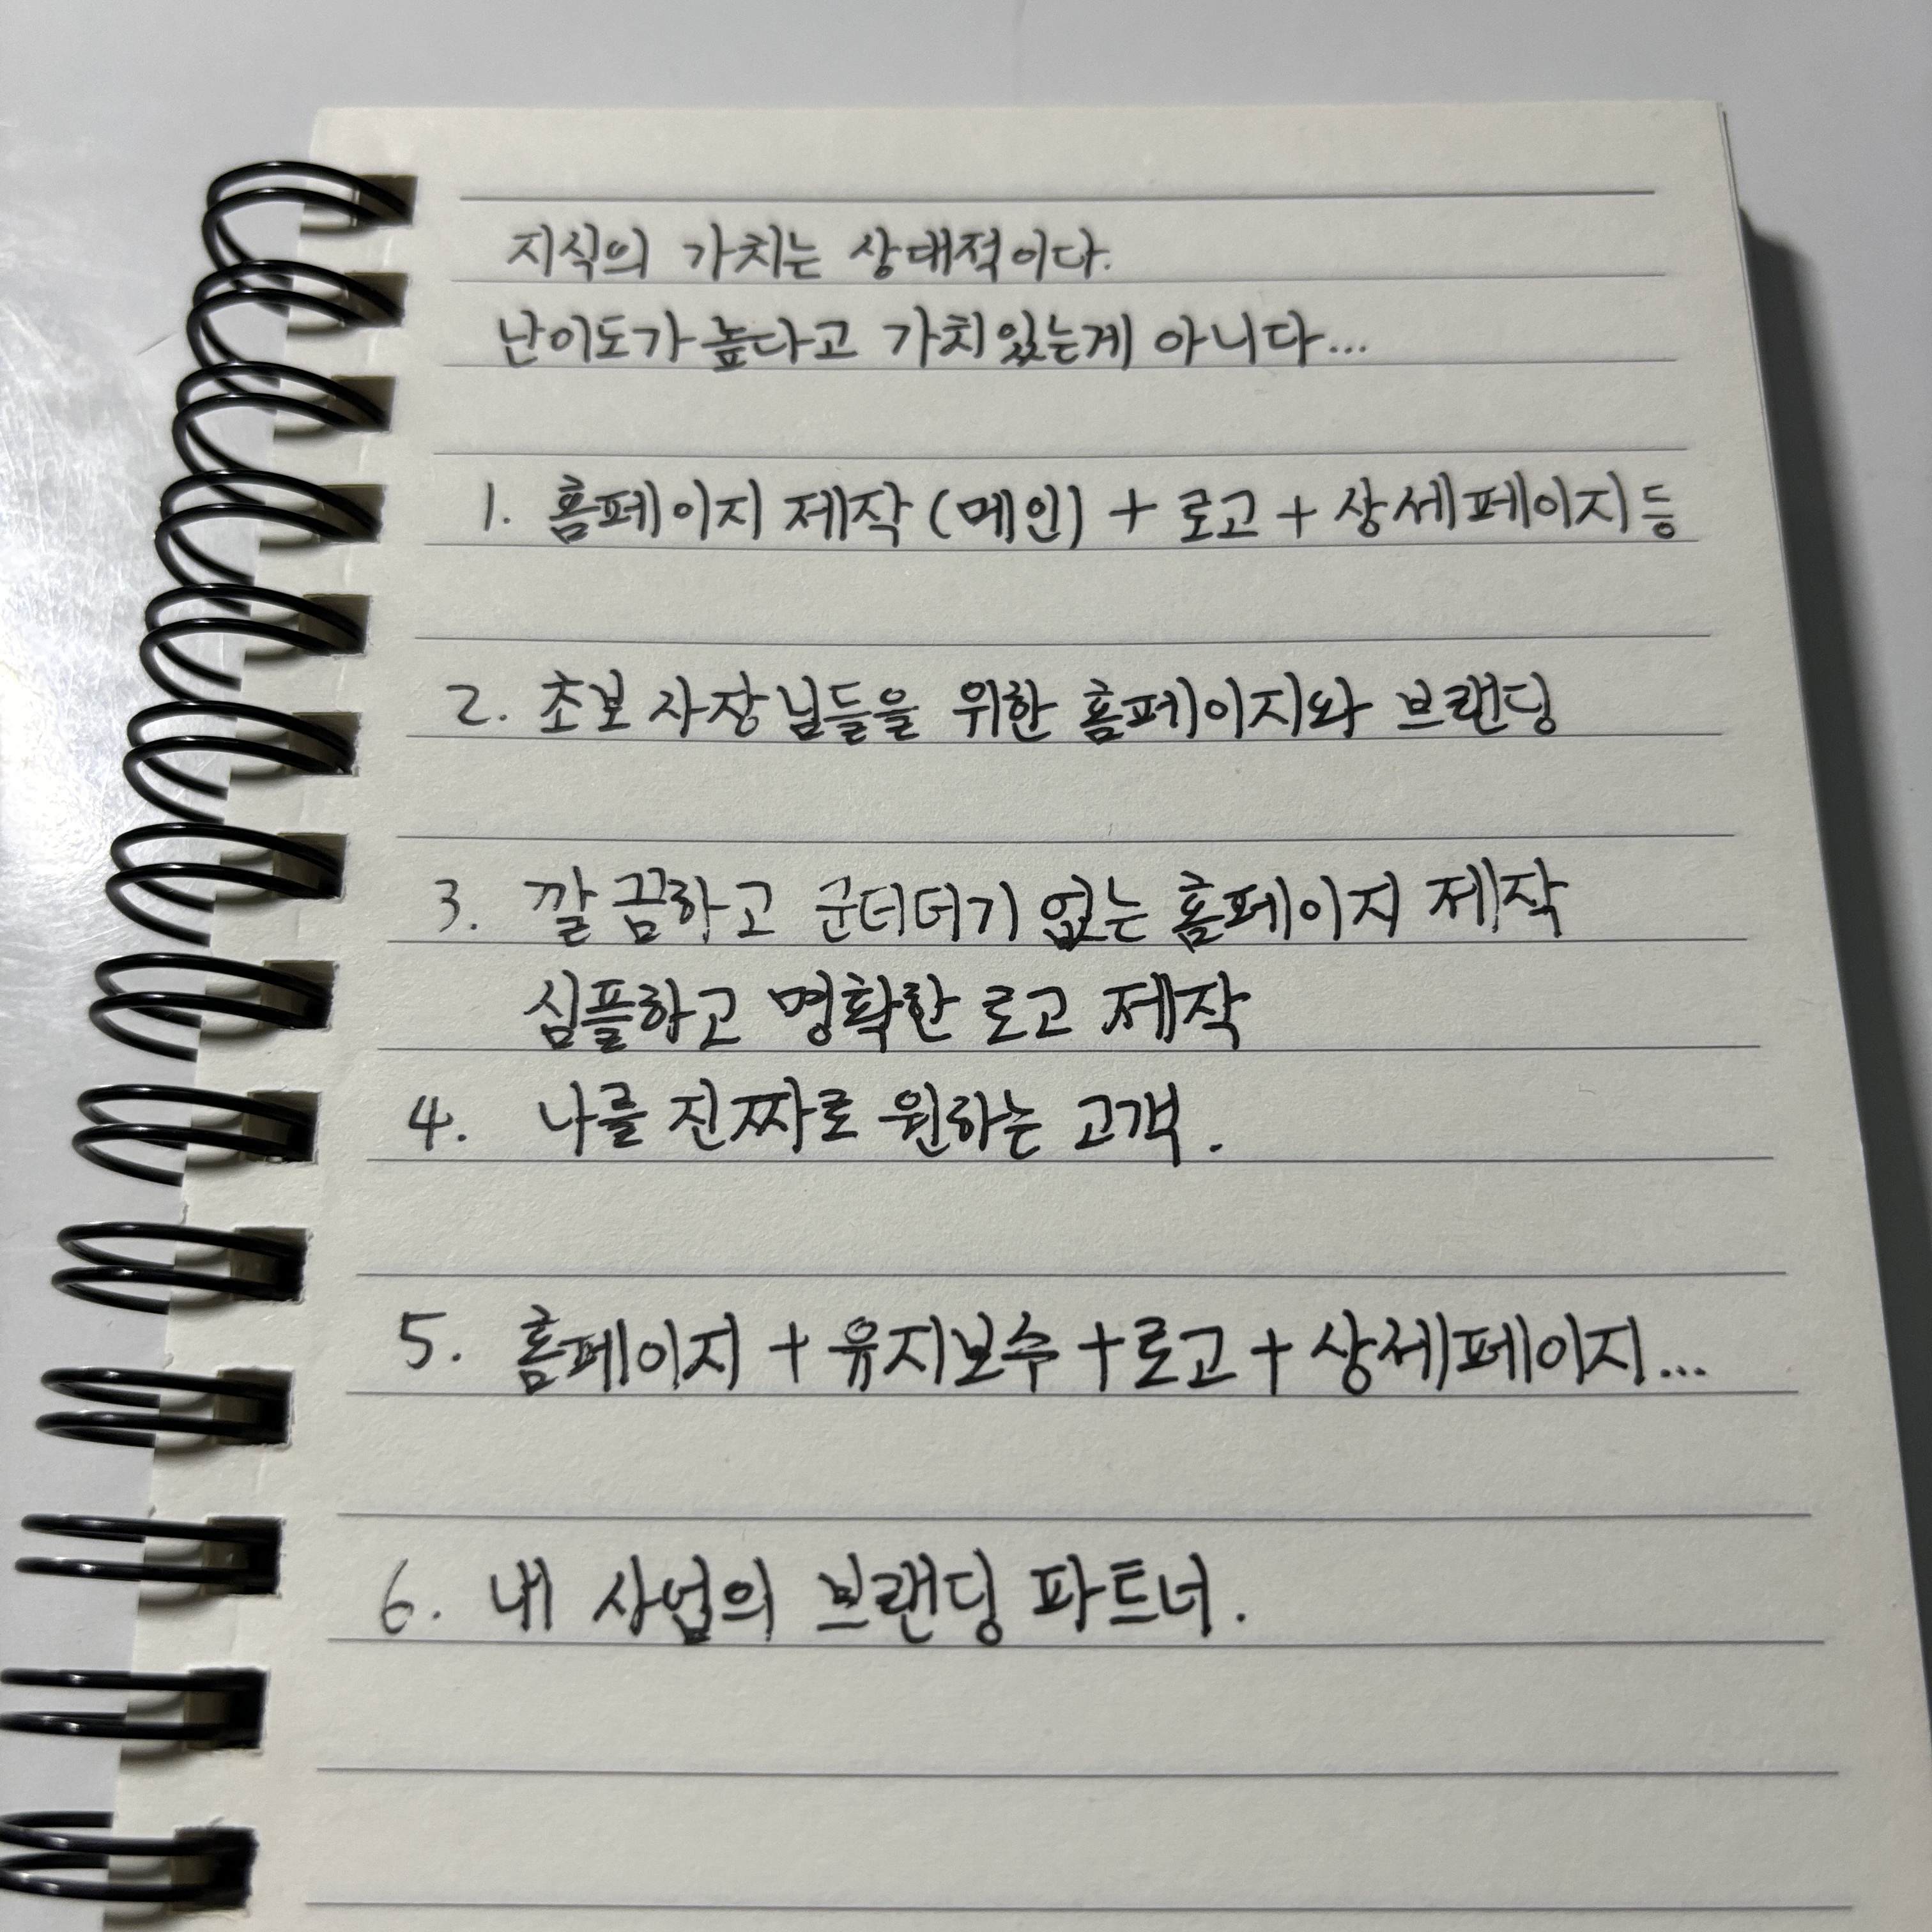 지식의 가치는 상대적이다.
난이도가 높다고 가치있는게 아니다...
1. 홈페이지 제작 (메인) + 로고 + 상세페이지 등
2. 초보 사장님들을 위한 홈페이지와 브랜딩
3. 깔끔하고 군더더기 없는 홈페이지 제작
심플하고 명확한 로고 제작
4. 나를 진짜로 원하는 고객.
5. 홈페이지 + 유지보수 + 로고 + 상세페이지...
6. 내 사업의 브랜딩 파트너.